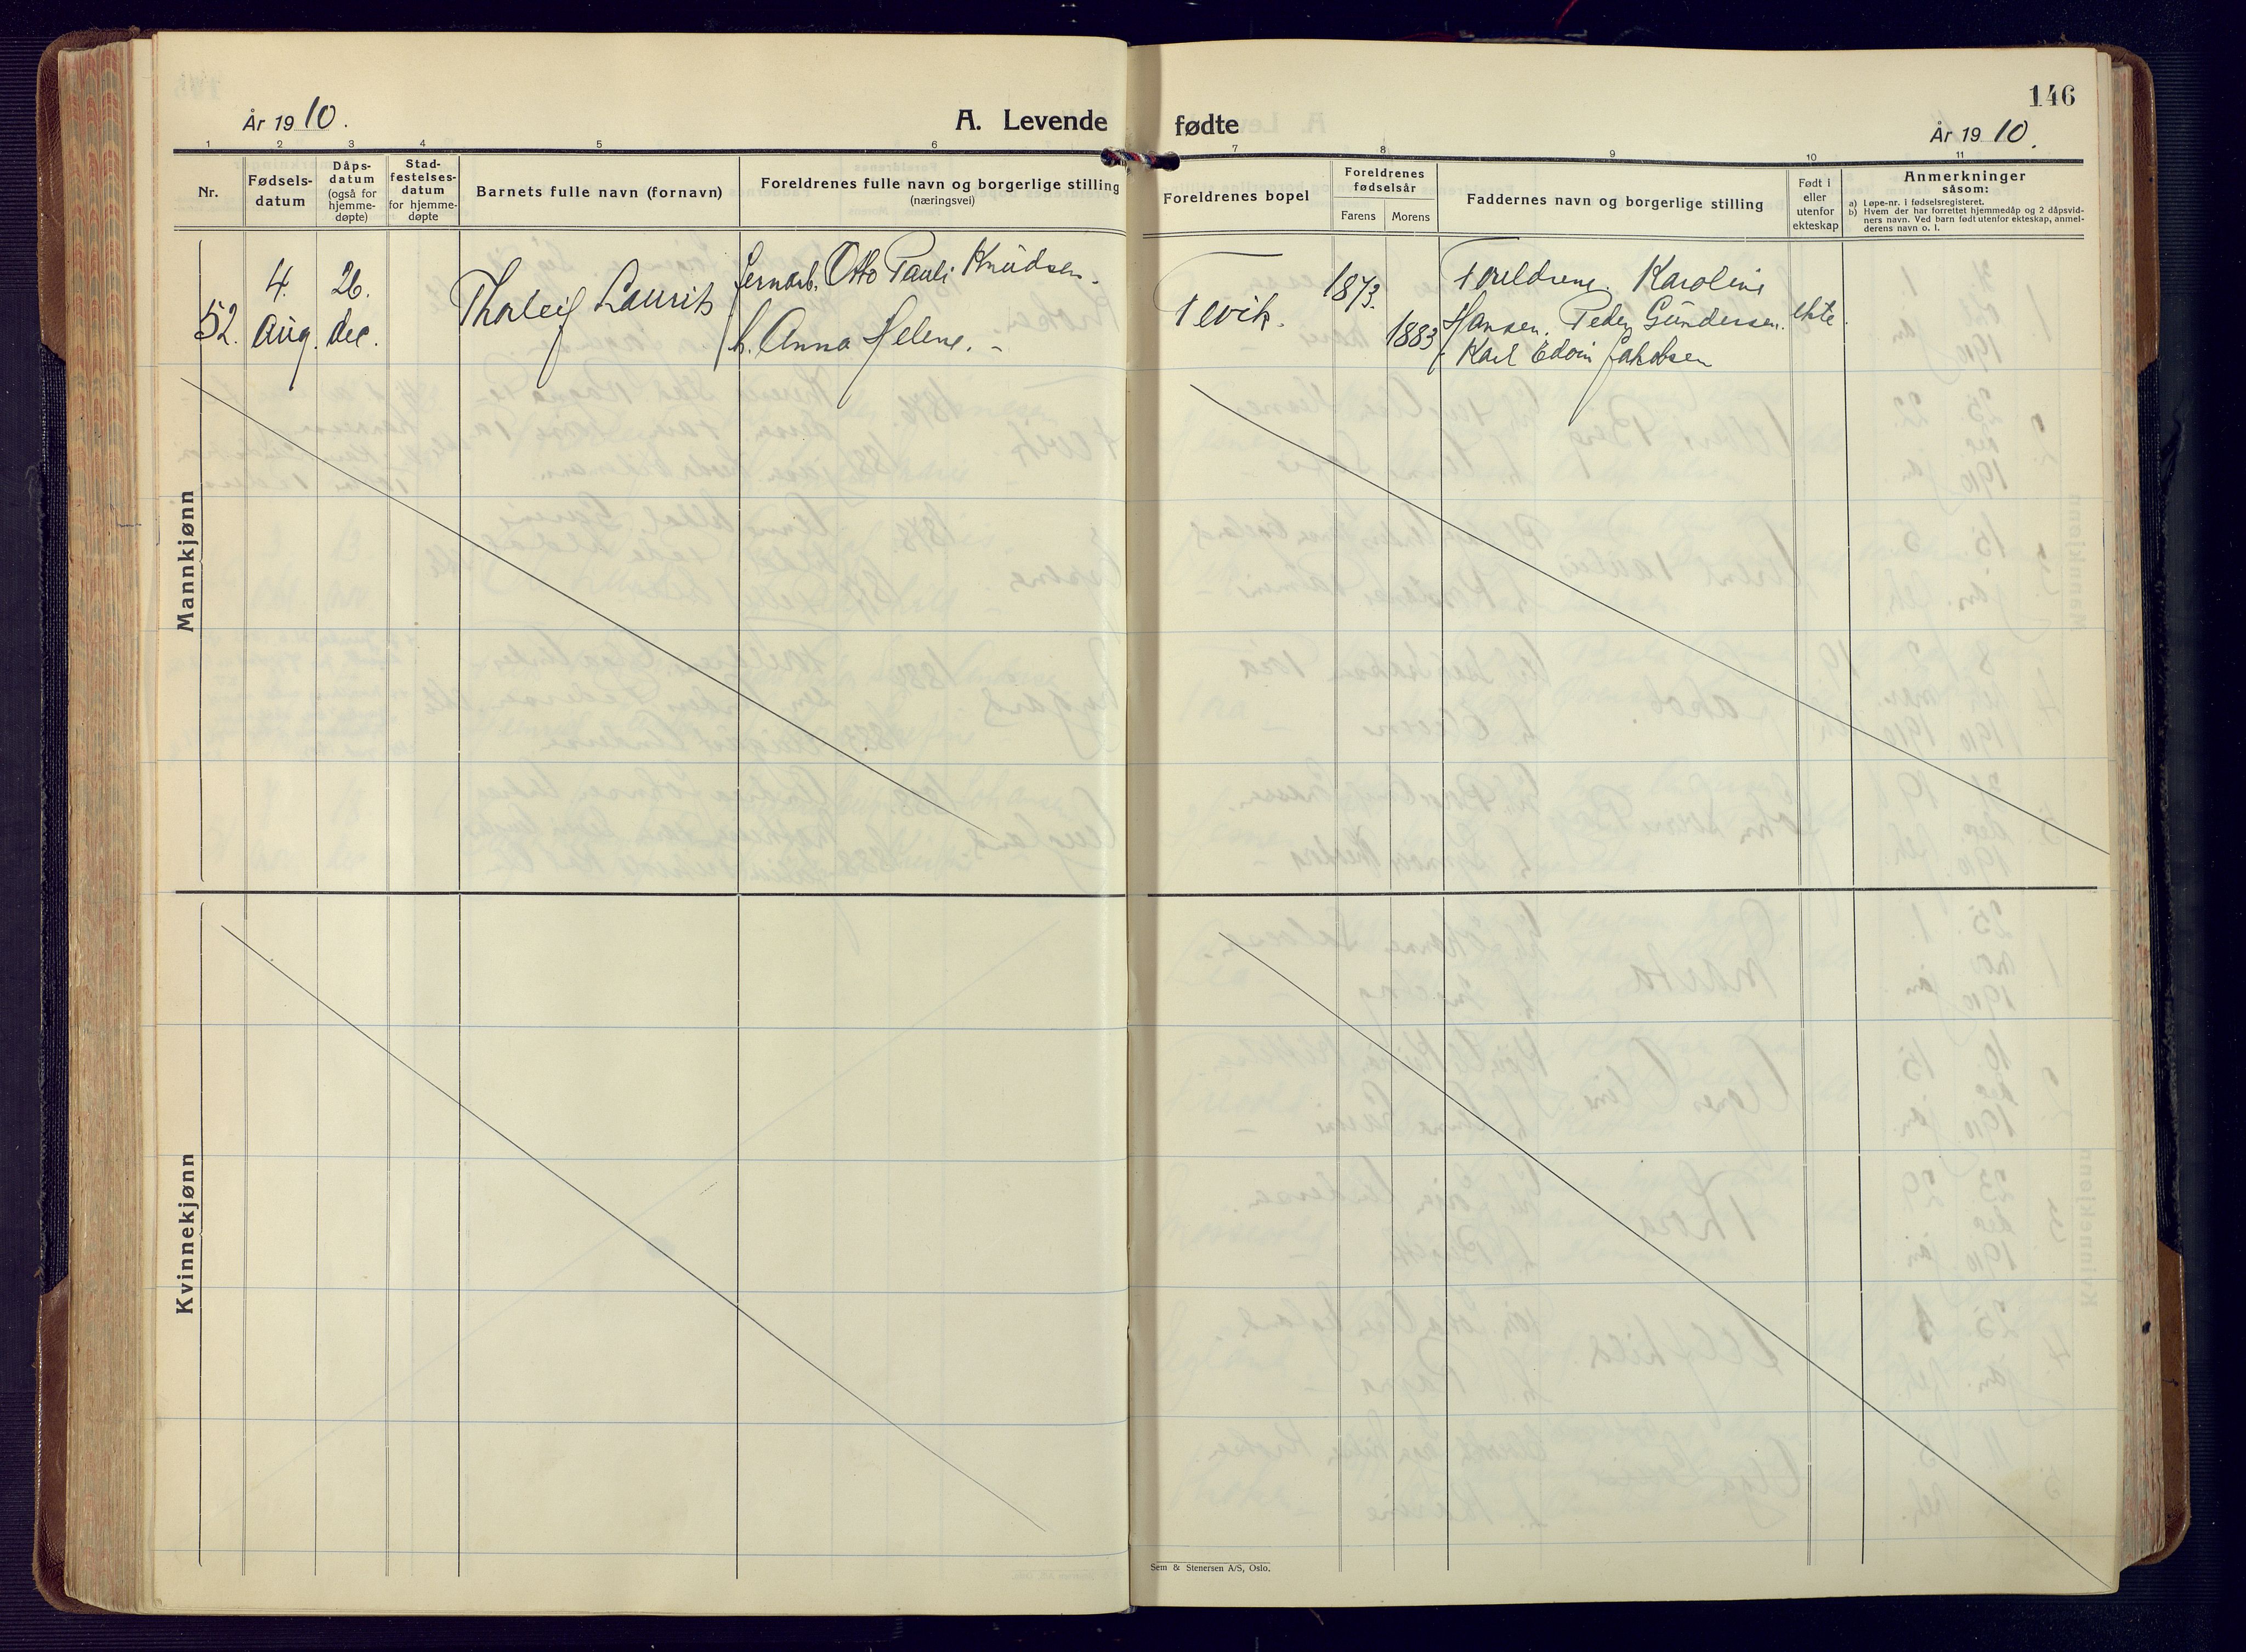 År 19 10.
A. Levende fødte
146
År 19 10.
1 2 3 4 5 6 7 8 9 10 11
Nr.
Fødsels-
datum
Dåps-
datum
(også for
hjemme-
døpte)
Stad-
festelses-
datum
for hjemme-
døpte
Barnets fulle navn (fornavn)
Foreldrenes fulle navn og borgerlige stilling
(næringsvei)
Foreldrenes bopel
Foreldrenes
fødselsår
Farens
Morens
Faddernes navn og borgerlige stilling
Født i
eller
utenfor
ekteskap
Anmerkninger
såsom:
a) Løpe-nr. i fødselsregisteret.
b) Hvem der har forrettet hjemmedåp og 2 dåpsvid-
ners navn. Ved barn født utenfor ekteskap, anmel-
derens navn o. l.
Mannkjønn
52.
4.
Aug.
26.
dec.
Thorleif Laurits
Jernarb. Otto Pauli Knudsen.
h. Anna Helene. -
Fevik.
1873.
1883
Foreldrene. Karoline
Hansen. Peder Gundersen.
Karl Edvin Jakobsen
ekte.
Kvinnekjønn
Sem & Stenersen A/S, Oslo.